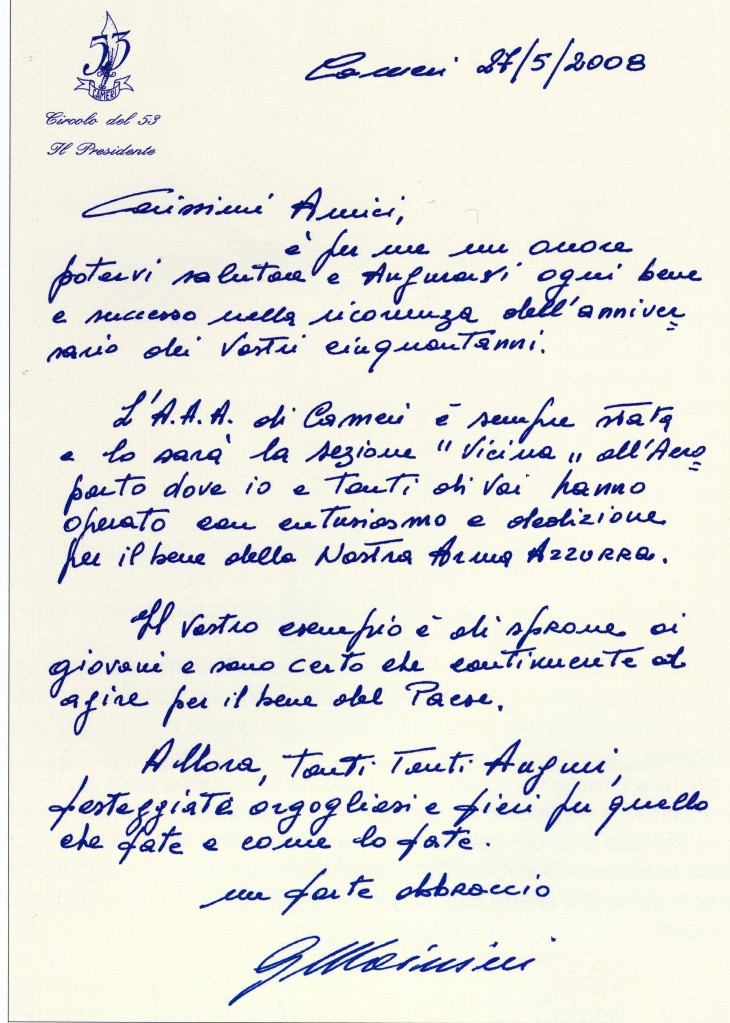 53
CAMERI
Circolo del 53
Il Presidente
Cameri 27/5/2008
Carissimi Amici,
è per me un onore
potervi salutare e Augurarvi ogni bene
e successo nella ricorrenza dell'anniver=
sario dei Vostri cinquant'anni.
L'A.A.A. di Cameri è sempre stata
e lo sarà la sezione "Vicina" all'Aero=
porto dove io e tanti di Voi hanno
operato con entusiasmo e dedizione
per il bene della Nostra Arma Azzurra.
Il Vostro esempio è di sprone ai
giovani e sono certo che continuerete ad
agire per il bene del Paese.
Allora, Tanti Tanti Auguri,
festeggiate orgogliosi e fieri per quello
che fate e come lo fate.
un forte abbraccio